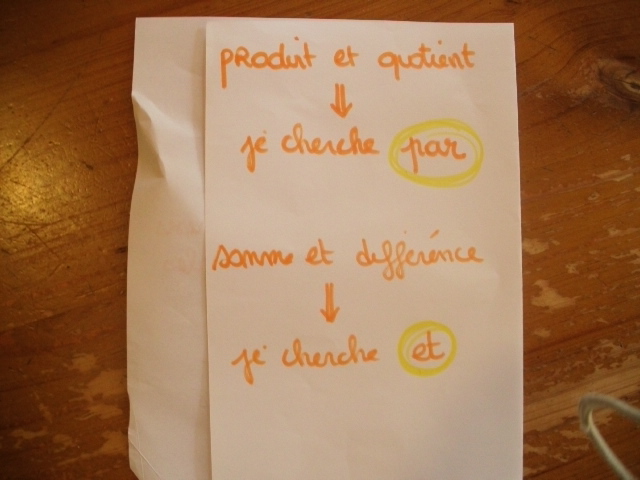 produit et quotient
⇓
je cherche par
somme et différénce
⇓
je cherche et